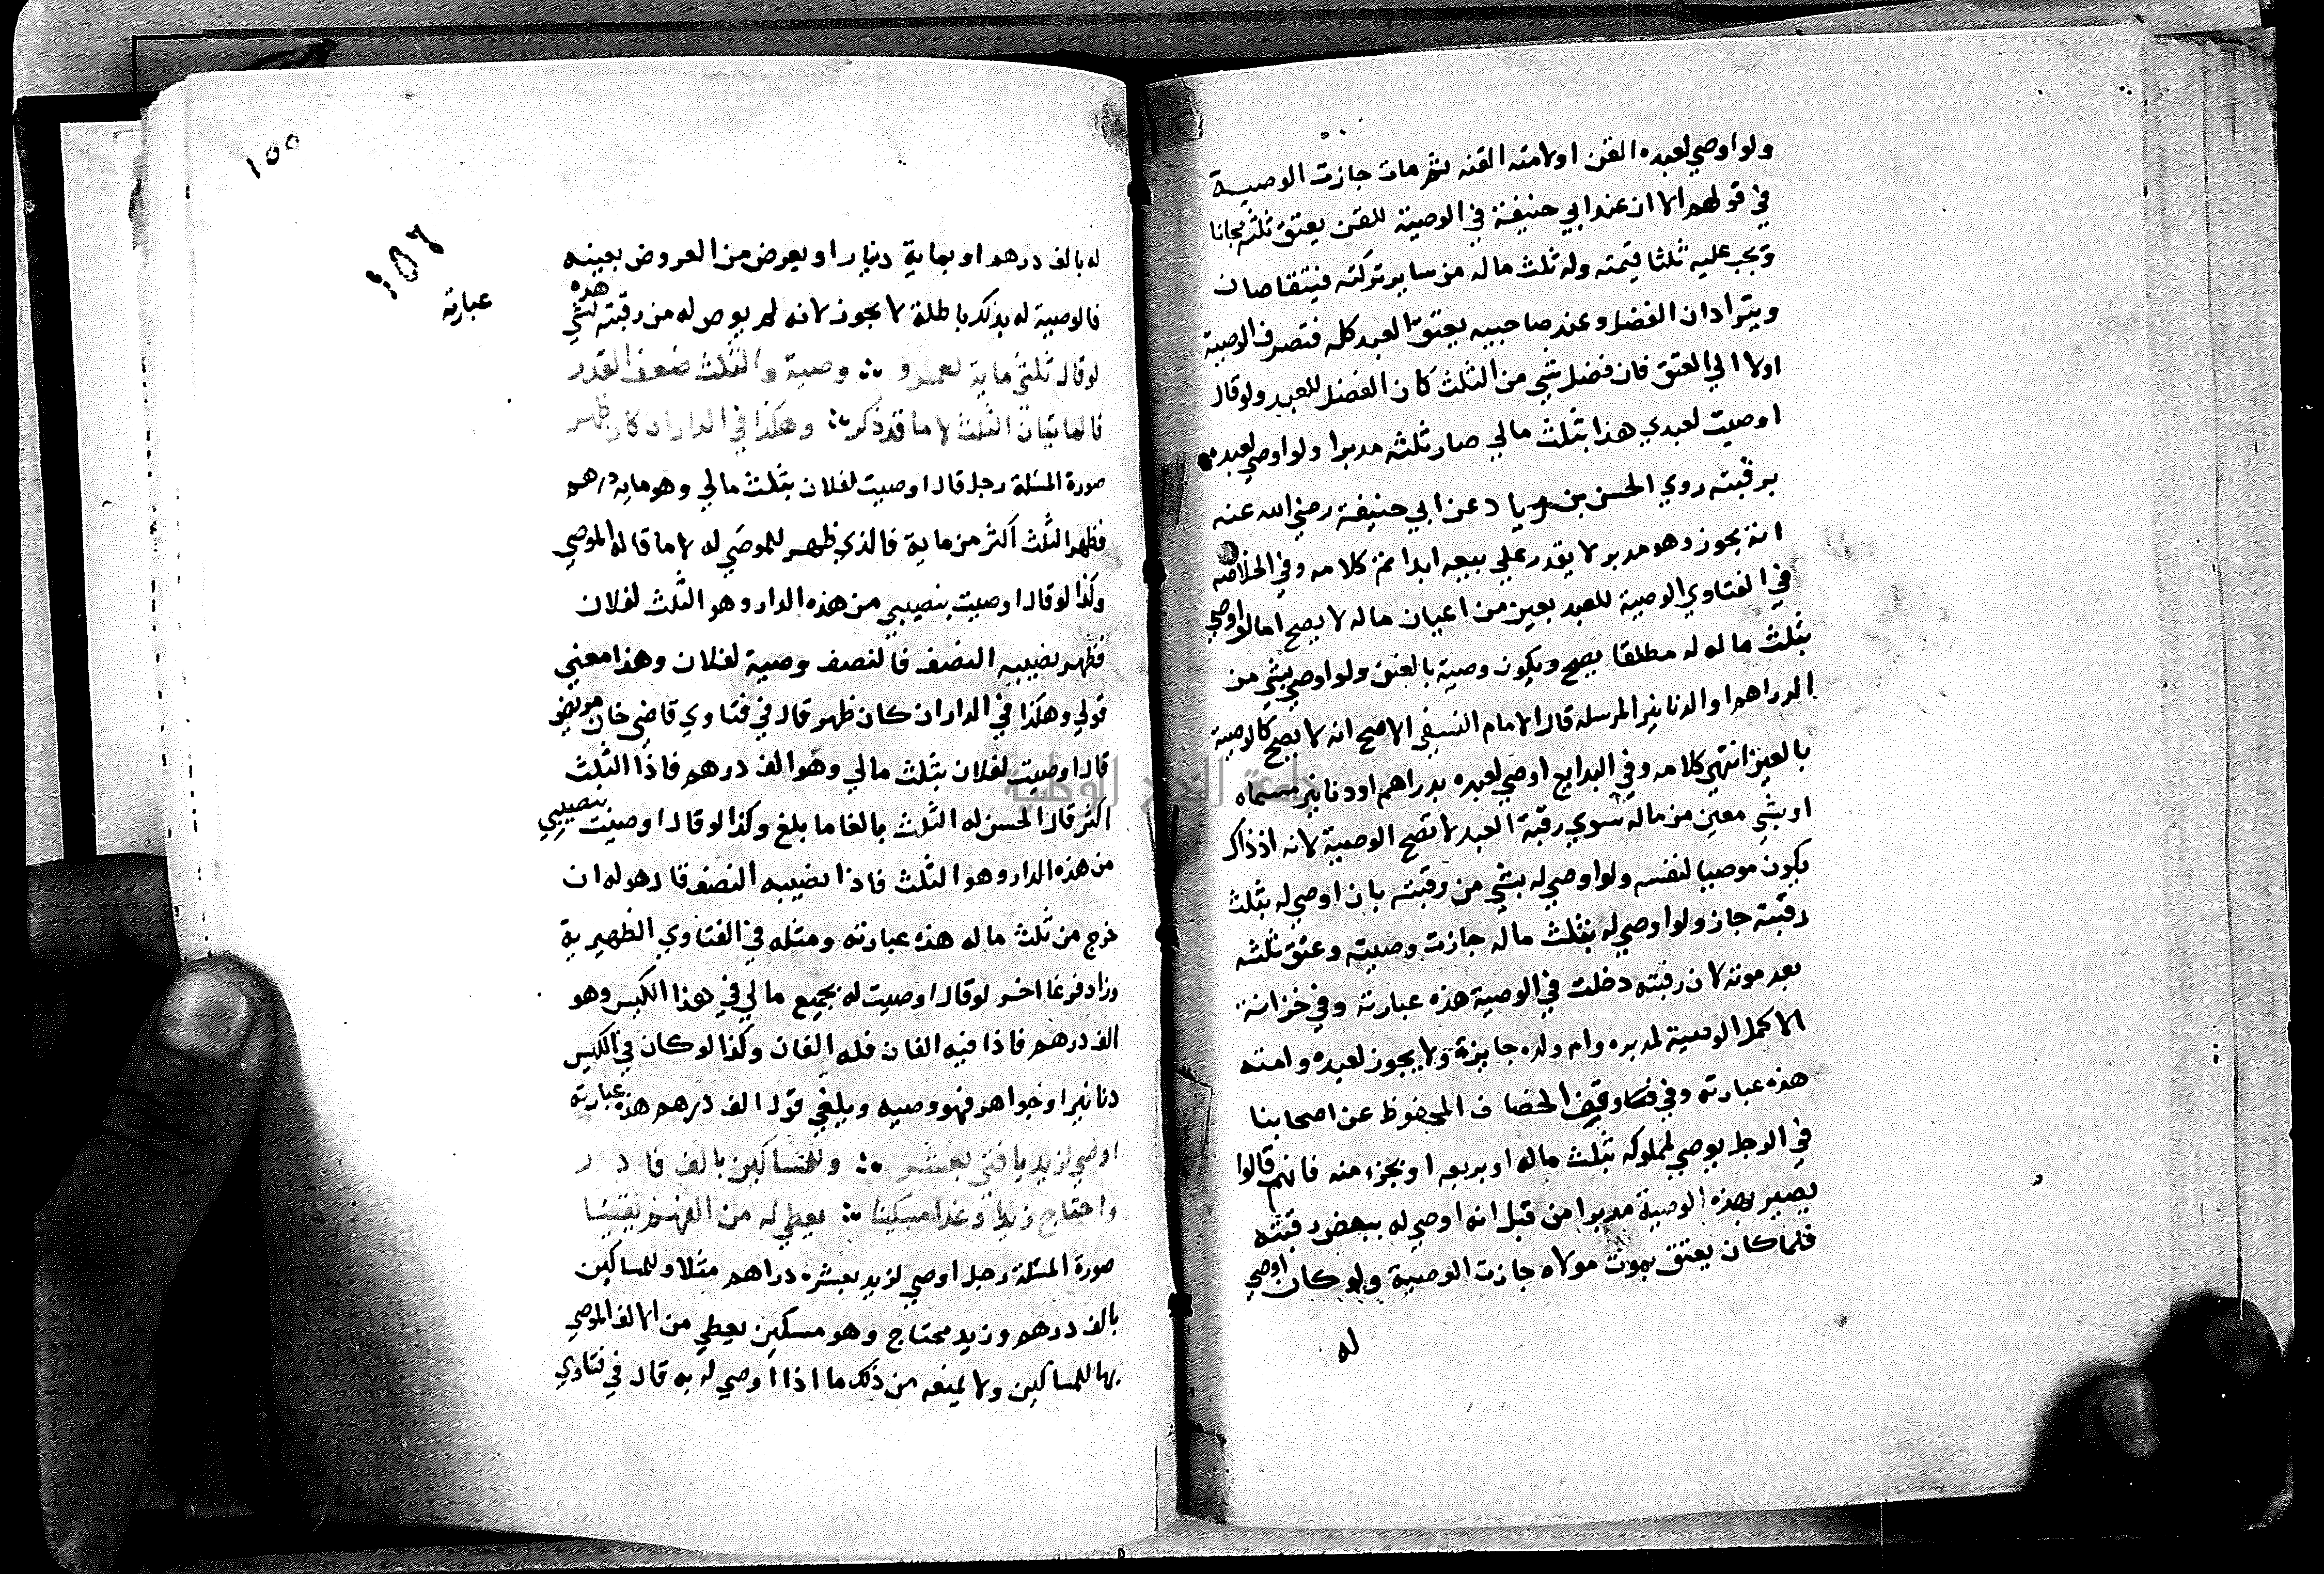 ولو اوصي لعبده القن او لامته القنه ثم مات جازت الوصية
في قولهم الا ان عند ابي حنيفة في الوصية للقن يعتق ثلثه مجانا
ويجب عليه ثلثا قيمته وله ثلث ماله من ساير تركته فيتقاصان
ويترادان الفضل وعند صاحبيه يعتق العبد كله فتصرف الوصية
اولا الي العتق فان فضل شي من الثلث كان الفضل للعبد ولو قال
اوصيت لعبدي هذا بثلث مالي صار ثلثه مدبرا ولو اوصي لعبده
برقبته روي الحسن بن زياد عن ابي حنيفة رضي الله عنه
انه يجوز وهو مدبر لا يقدر علي بيعه ابدا تم كلامه وفي الخلاصه
في الفتاوي الوصية للعبد بعين من اعيان ماله لا يصح اما لو اوصي
بثلث ماله له مطلقا يصح ويكون وصية بالعتق ولو اوصي بشي من
الدراهم او الدنانير المرسله قال الامام النسفي الاصح انه لا يصح كالوصية
بالعين انتهي كلامه وفي البدايع اوصي لعبده بدراهم او دنانير مسماه
او بشي معين من ماله سوي رقبة العبد لا تصح الوصية لانه اذ ذاك
يكون موصيا لنفسه ولو اوصي له بشي من رقبته بان اوصي له بثلث
رقبته جاز ولو اوصي له بثلث ماله جازت وصيته وعتق ثلثه
بعد موته لان رقبته دخلت في الوصية هذه عبارته وفي خزانة
الاكمل الوصية لمدبره وام ولده جايزة ولا يجوز لعبده وامته
هذه عبارته وفي وقف الخصاف المحفوظ عن اصحابنا
في الرجل يوصي لمملوكه بثلث ماله او بربعه او بجزء منه فانهم قالوا
يصير بهذه الوصية مدبرا من قبل انه اوصي له ببعض رقبته
فلما كان يعتق بموت مولاه جازت الوصية ولو كان اوصي
له
١٥٥
١٥٤
له بالف درهم او بماية دينار او بعرض من العروض بعينه
فالوصية له بذلك باطلة لا يجوز لانه لم يوص له من رقبته بشي هذه
عبارته
لو قال ثلثي ماية لعمرو ؞ وصية والثلث ضعف القدر
فالماتيان الثلث لا ما قد ذكر ؞ وهكذا في الدار ان كان ظهر
صورة المسئلة رجل قال اوصيت لفلان بثلث مالي وهو مايه درهم
فظهر الثلث اكثر من ماية فالذي ظهر للموصي له لا ما قاله الموصي
وكذا لو قال اوصيت بنصيبي من هذه الدار وهو الثلث لفلان
فظهر نصيبه النصف فالنصف وصية لفلان وهذا معني
قولي وهكذا في الدار ان كان ظهر قال في فتاوي قاضي خان مريض
قال اوصيت لفلان بثلث مالي وهو الف درهم فاذا الثلث
اكثر قال الحسن له الثلث بالغا ما بلغ وكذا لو قال اوصيت بنصيبي
من هذه الدار وهو الثلث فاذا نصيبه النصف قال هو له ان
خرج من ثلث ماله هذه عبارته ومثله في الفتاوي الظهيرية
وزاد فرعا اخر لو قال اوصيت له بجميع مالي في هذا الكيس وهو
الف درهم فاذا فيه الفان فله الفان وكذا لو كان في الكيس
دنانير او جواهر فهو وصيه ويلغي قول الف درهم هذه عبارته
اوصي لزيد يا فتي بعشر ؞ وللمساكين بالف
واحتاج زيد وغدا مسكينا ؞ يعطي له من الفهم يقينا
صورة المسئلة رجل اوصي لزيد بعشره دراهم مثلا وللمساكين
بالف درهم وزيد محتاج وهو مسكين يعطي من الالف الموصي
بها للمساكين ولا يمنعه من ذلك ما اذا اوصي له به قال في فتاوي